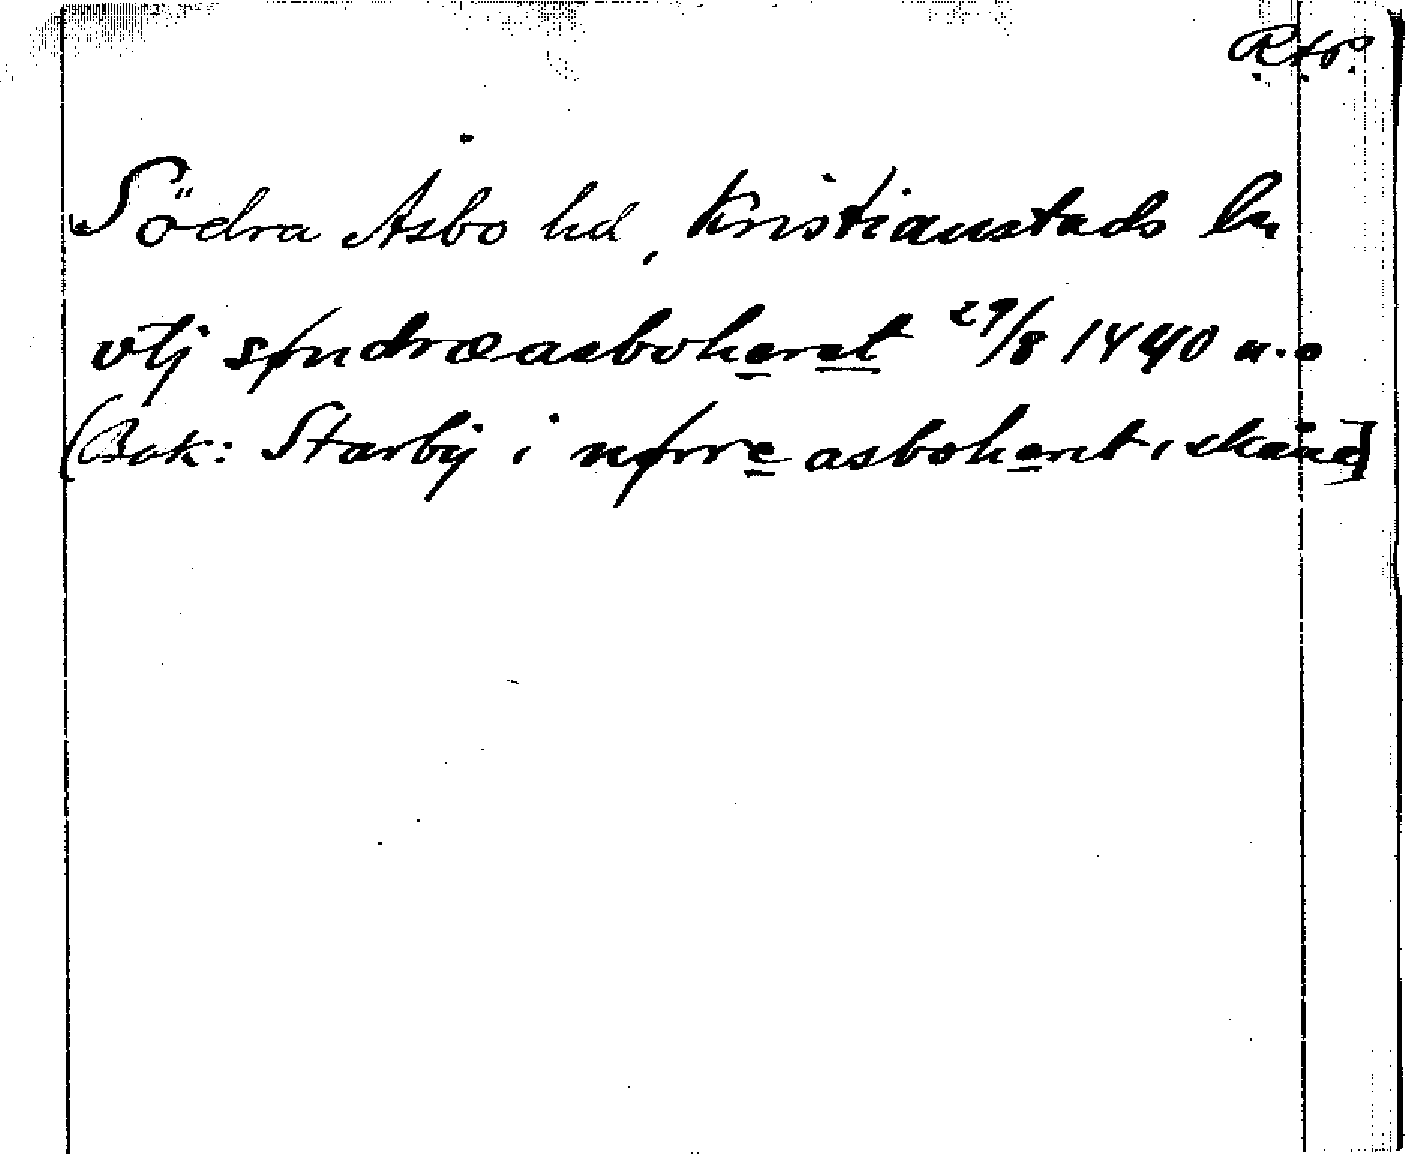 Södra Åsbo hd, Kristianstads ln
vtj søndræasboheret 29/8 1440 u.o
(Bak: Starby i nørre asboherit i skane)